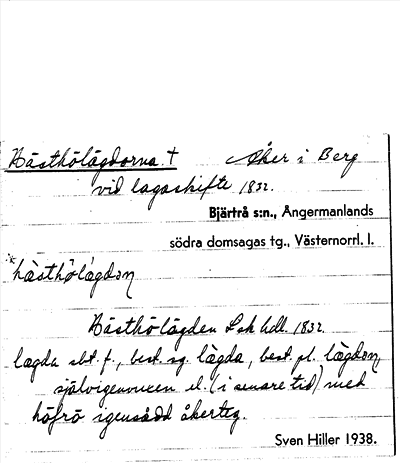 Hästhölägdorna. † Åker i Berg
vid lagaskifte 1832.
Bjärtrå s:n., Ångermanlands
södra domsagas tg., Västernorrl. l.
*hästhölägdon
Hästhölägden Lsk hdl. 1832.
lægda sbt. f., best. sg. lægda, best. pl. lægdon,
självigenvuxen el. (i senare tid) med
höfrö igensådd åkerteg.
Sven Hiller 1938.